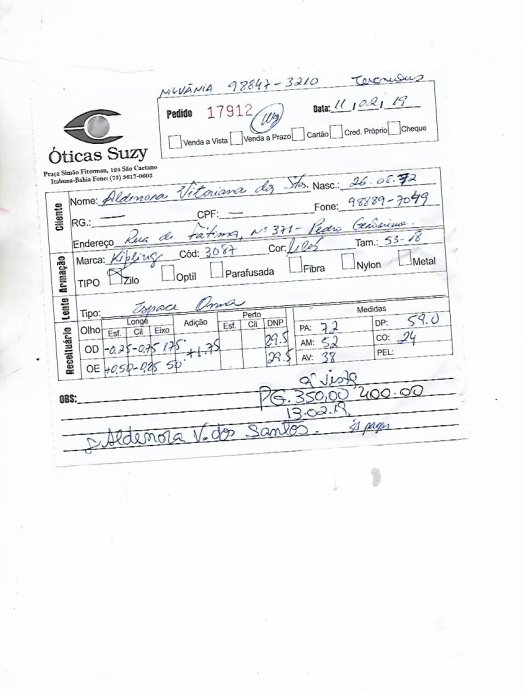 NILVÂNIA 98847-3210
Pedido 17912 Data: 11, 02, 19
Venda a Vista Venda a Prazo Cartão Cred. Próprio Cheque
Óticas Suzy
Praça Simão Fiterman, 124 São Caetano
Itabuna-Bahia Fone: (73) 3617-0600
Cliente
Nome: Aldenora Vitoriana dos Stos. Nasc.: 26.08.72
RG.: — CPF: — Fone: 98889-7049
Endereço Rua de Fátima, Nº 371 - Pedro Gerônimo.
Armação
Marca: Kipling Cód: 3087 Cor: Lilás Tam.: 53-18
TIPO Zilo Optil Parafusada Fibra Nylon Metal
Lente
Tipo: Espace Orma
Receituário
Longe Adição Perto Medidas
Olho Esf. Cil Eixo Esf. Cil DNP PA: 22 DP: 59.0
OD -0,25 -0,75 175° +1.75 29.5 AM: 52 CO: 24
OE +0,50 -0,25 50° 29.5 AV: 38 PEL:
OBS: à vista
PG. 350,00 400.00
13.02.19
Aldenora V. dos Santos.